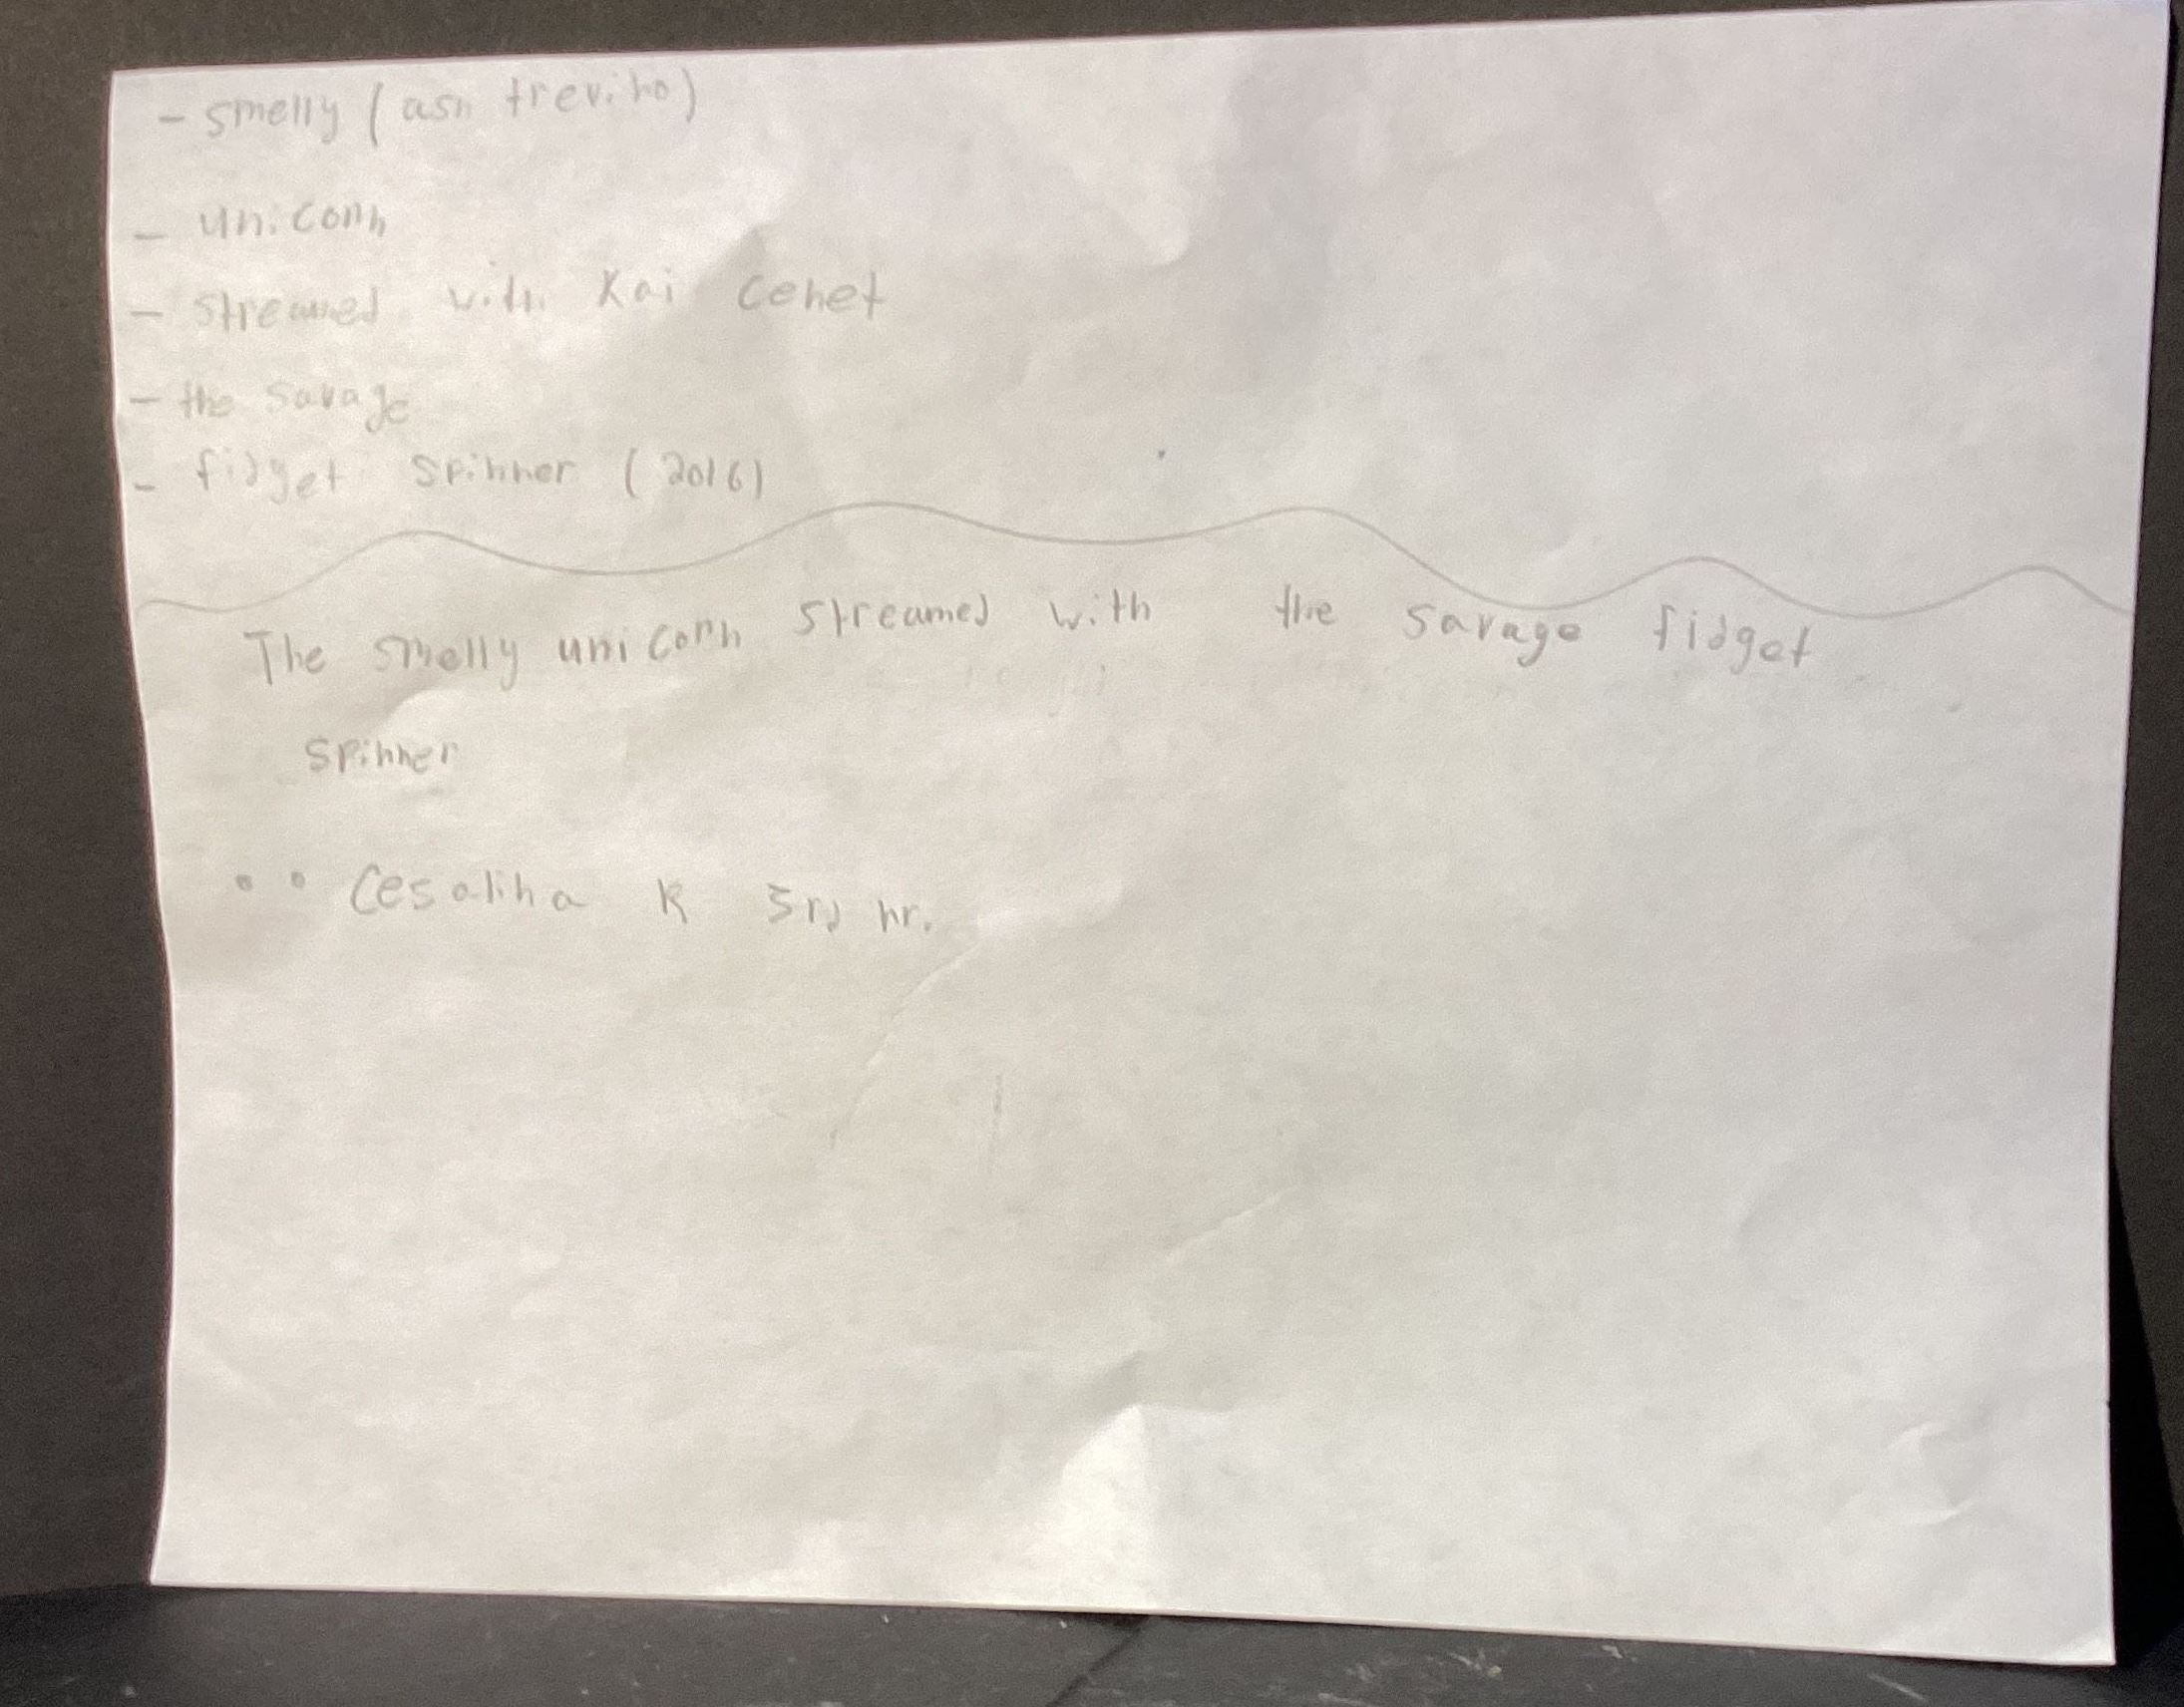 - smelly (ash trevino)
- unicorn
- streamed with Kai Cenet
- the savage
- fidget spinner (2016)
The smelly unicorn streamed with the savage fidget
spinner
Cesalina K 3rd hr.